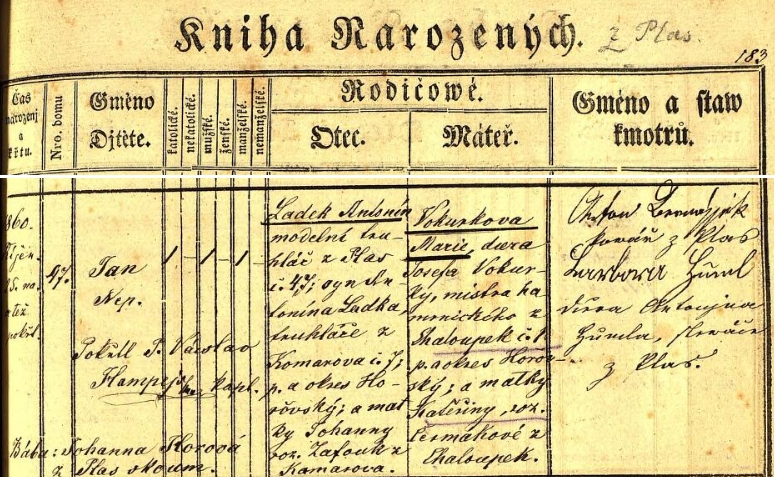 Kniha Narozených. z Plas.
183
Čas narození a křtu.
Nro. domu
Gméno Djtěte.
katolické.
nekatolické.
mužské.
ženské.
manželské.
nemanželské.
Rodičowé.
Otec.
Máteř.
Gméno a staw kmotrů.
1860.
15. no.
47.
Jan
Nep.
1 - 1 - 1
Pokřtil P. Václav
kapl.
Bába: Johanna Horová
z Plas zkoum.
Ladek Antonín
modelní tru-
hlář z Plas
č. 47; syn An-
tonína Ladka,
truhláře z
Komarova č. 7;
p. a okres Ho-
řovský; a mat
ky Johanny
roz. Zafouk z
Kamarova.
Vokurkova
Marie, dcera
Josefa Vokur-
ky, mistra ha
mrnického z
Chaloupek č. 1
p. a okres Horov-
ský; a matky
Kateřiny, roz.
Čermákové z
Chaloupek.
Anton
kovář z Plas
Barbara Huml
dcera Antonjna
Humla,
z Plas.